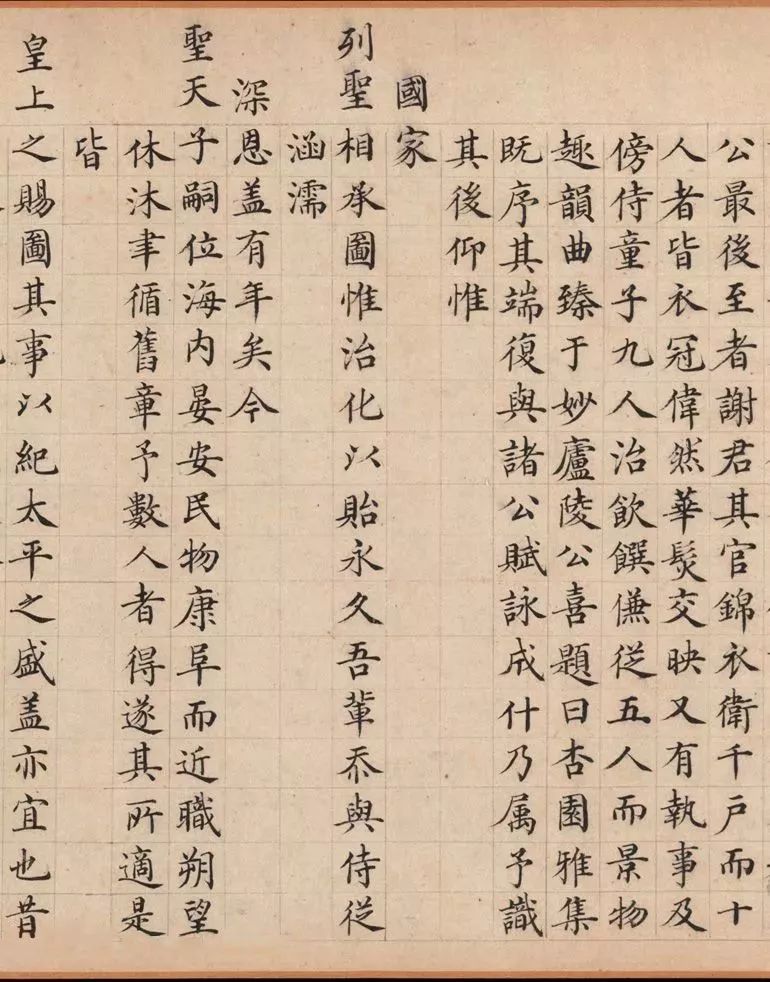 公最後至者謝君其官錦衣衛千戶而十
人者皆衣冠偉然華髮交映又有執事及
傍侍童子九人治飲饌傔從五人而景物
趣韻曲臻于妙廬陵公喜題曰杏園雅集
既序其端復與諸公賦詠成什乃属予識
其後仰惟
國家
列聖相承圖惟治化以貽永久吾輩忝與侍從
涵濡
深恩蓋有年矣今
聖天子嗣位海内晏安民物康阜而近職朔望
休沐聿循舊章予數人者得遂其所適是
皆
皇上之賜圖其事以紀太平之盛蓋亦宜也昔